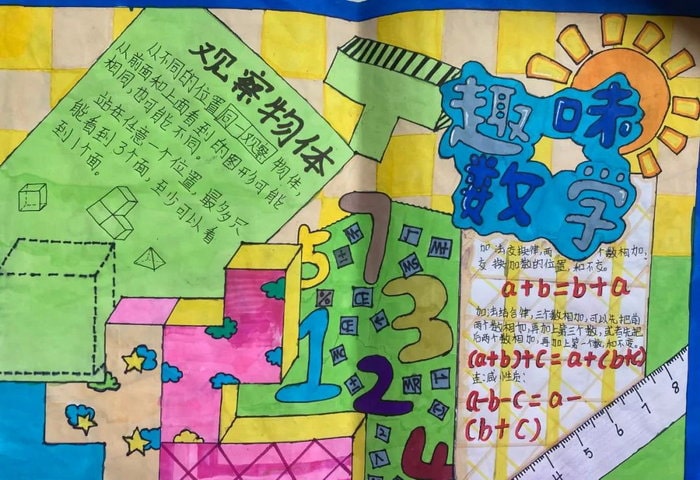 观察物体
从不同的位置同一观察物体,
从前面和上面看到的图形可能
相同,也可能不同。
站在任意一个位置,最多只
能看到3个面,至少可以看
到1个面。
趣味
数学
加法交换律,两个数相加,
交换加数的位置,和不变。
a+b=b+a
加法结合律,三个数相加,可以先把前
两个数相加,再加上第三个数,或者先把
后两个数相加,再加上第一个数,和不变。
(a+b)+c=a+(b+c)
连减性质:
a-b-c=a-
(b+c)
7
5
3
1
2
%
CE
MS
MC
MR
4
5
6
7
8